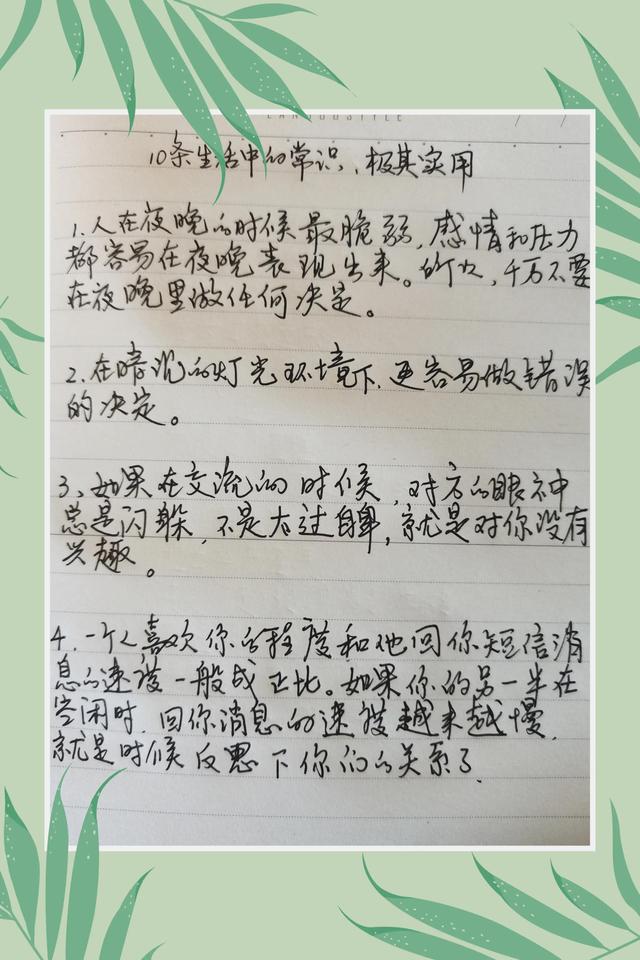 10条生活中的常识,极其实用
1.人在夜晚的时候最脆弱,感情和压力
都容易在夜晚表现出来。所以,千万不要
在夜晚里做任何决定。
2.在暗沉的灯光环境下,更容易做错误
的决定。
3、如果在交流的时候,对方的眼神
总是闪躲,不是太过自卑,就是对你没有
兴趣。
4.一个人喜欢你的程度和他回你短信消
息的速度一般成正比。如果你的另一半在
空闲时,回你消息的速度越来越慢,
就是时候反思下你们的关系了.